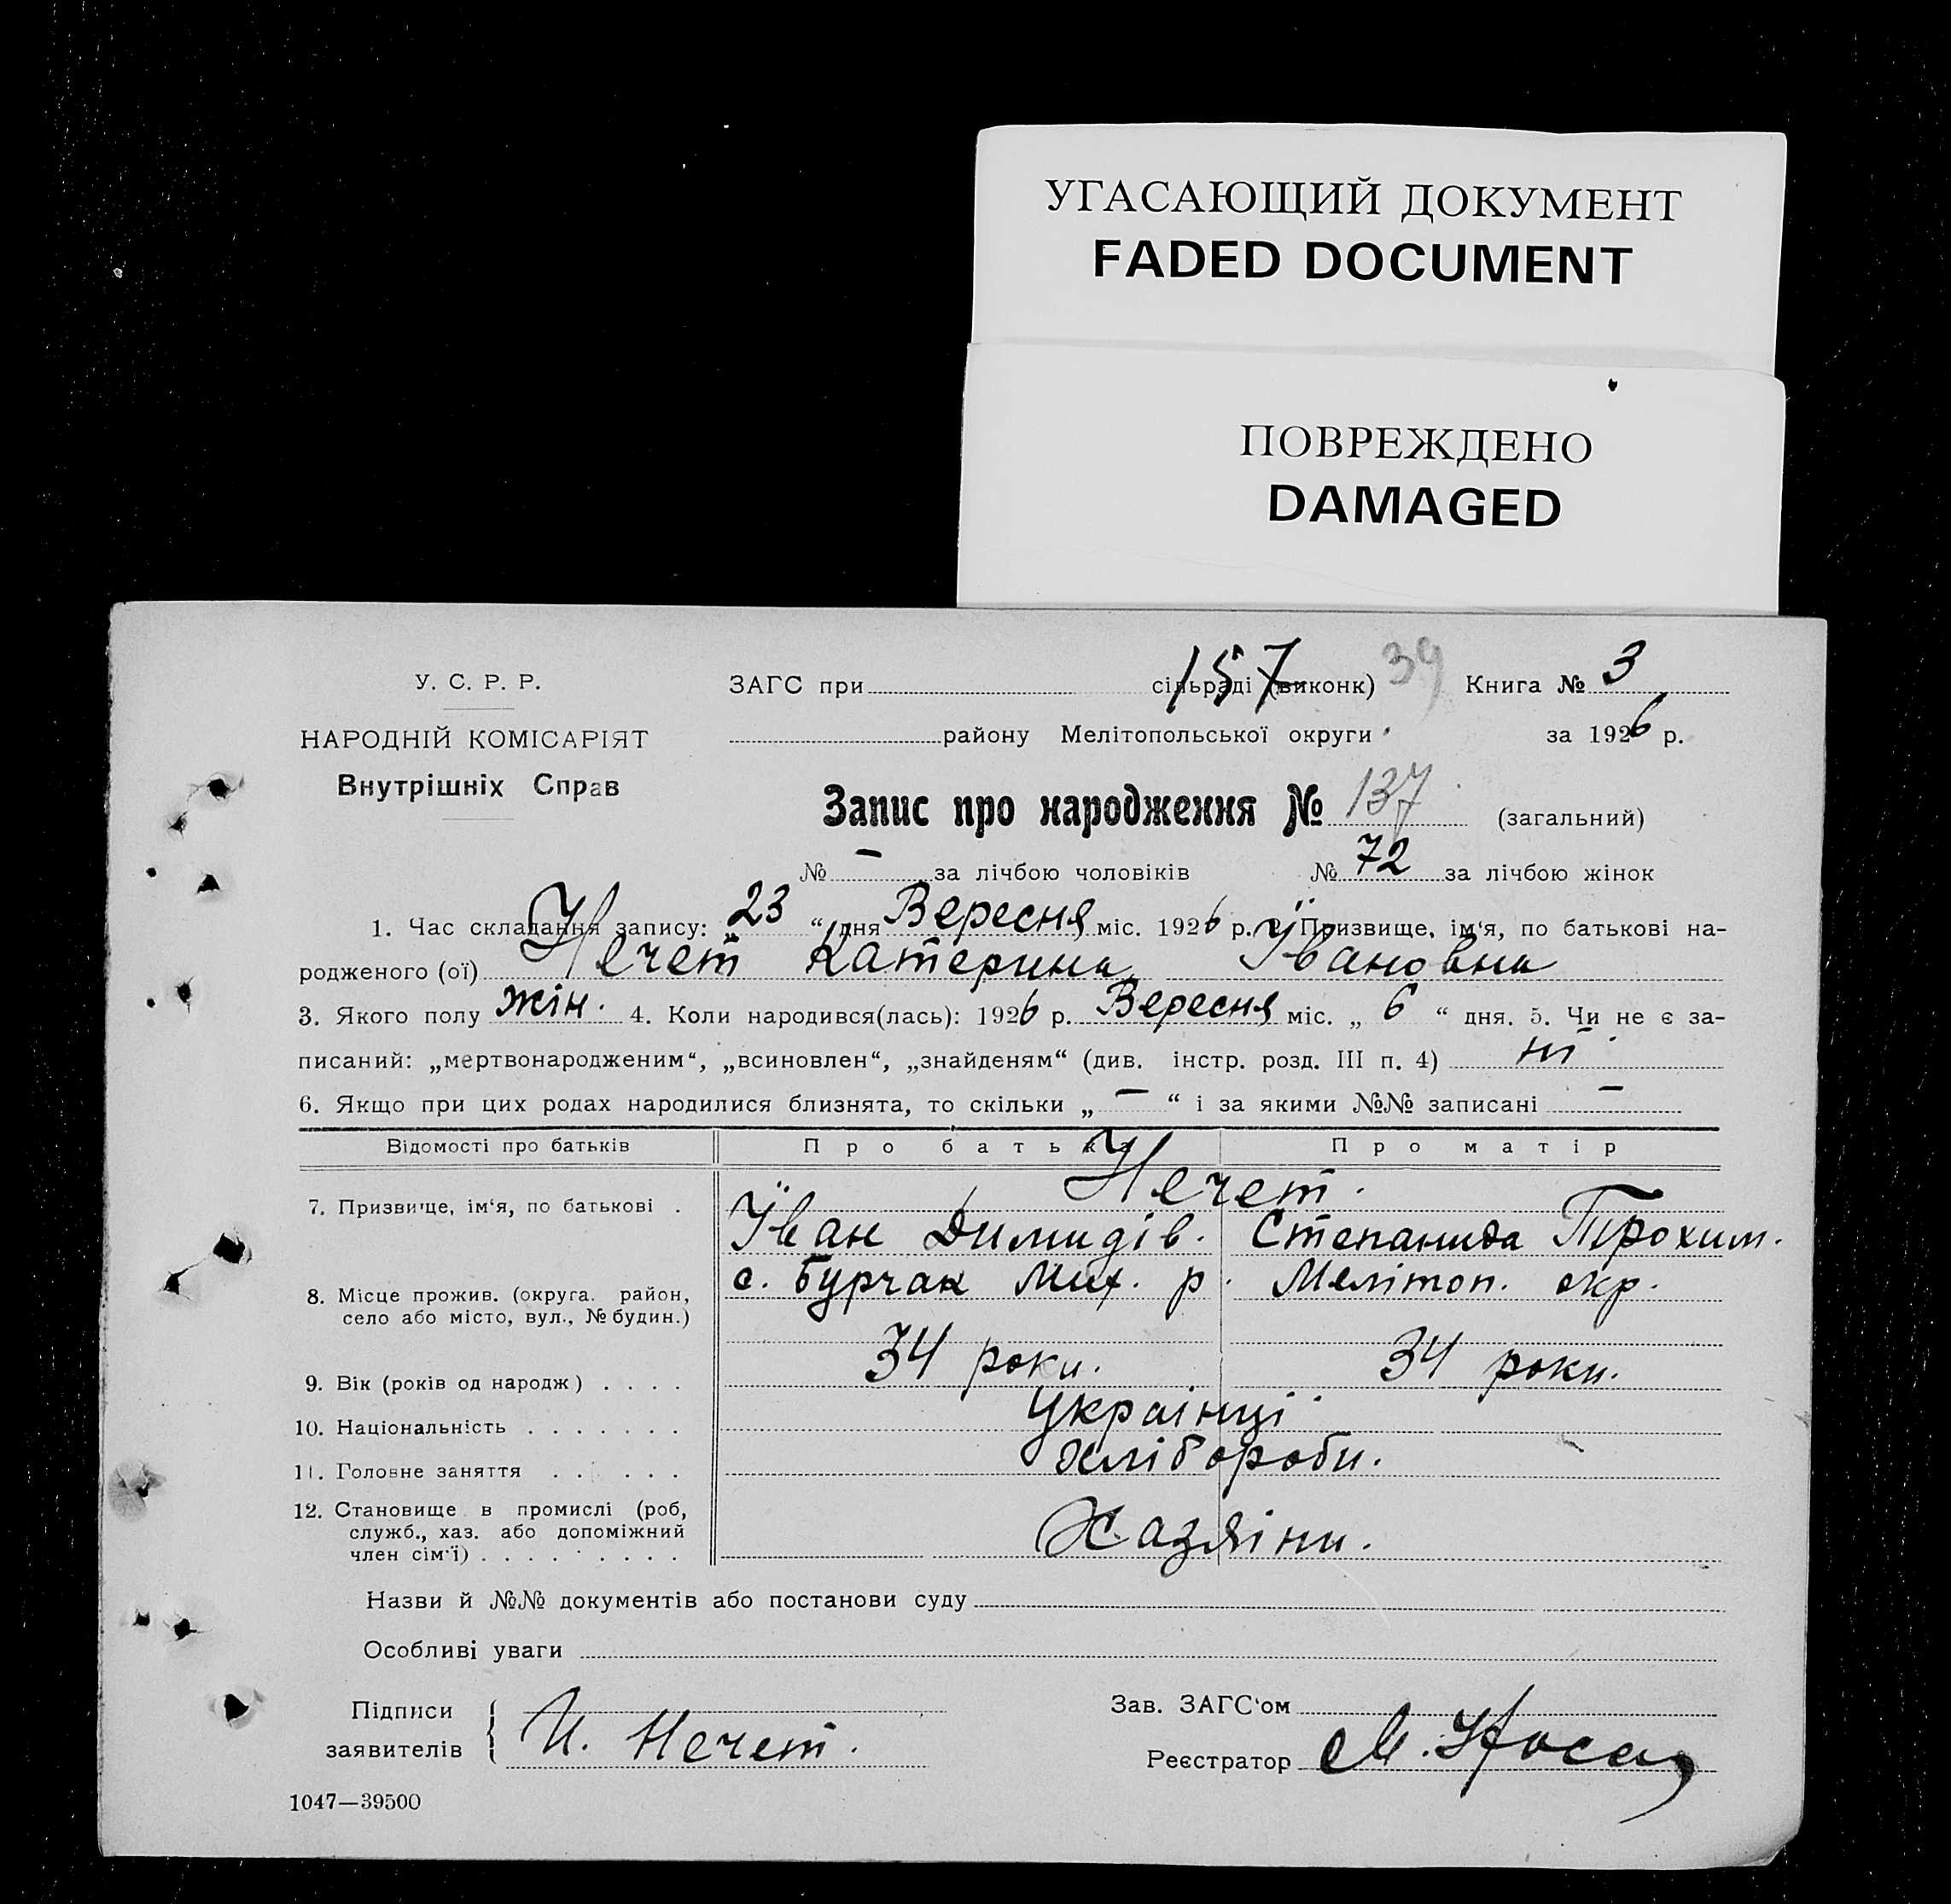 УГАСАЮЩИЙ ДОКУМЕНТ
FADED DOCUMENT
ПОВРЕЖДЕНО
DAMAGED
У. С. Р. Р.
НАРОДНІЙ КОМІСАРІЯТ
Внутрішніх Справ
157 39
ЗАГС при сільраді (виконк) Книга № 3
району Мелітопольської округи за 1926 р.
Запис про народження № 137 (загальний)
№ — за лічбою чоловіків № 72 за лічбою жінок
1. Час складання запису: „23“ дня Вересня міс. 1926 р. 2. Призвище, ім‘я, по батькові на-
родженого (ої) Нечет Катерина Івановна
3. Якого полу жін. 4. Коли народився(лась): 1926 р. Вересня міс. „ 6 “ дня. 5. Чи не є за-
писаний: „мертвонародженим“, „всиновлен“, „знайденям“ (див. інстр. розд. III п. 4) ні
6. Якщо при цих родах народилися близнята, то скільки „ — “ і за якими №№ записані —
Відомості про батьків Про батька Про матір
Нечет.
7. Призвище, ім‘я, по батькові .
Їван Димидів. Степанида Трохим.
с. Бурчак Мих. р. Меліт­оп. окр.
8. Місце прожив. (округа. район,
село або місто, вул., № будин.)
34 роки. 34 роки.
9. Вік (років од народж) . . . .
10. Національність . . . . . . . Українці
11. Головне заняття . . . . . . хлібороби.
12. Становище в промислі (роб,
служб., хаз. або допоміжний
член сім‘ї) . . . . . . . . . Хазяіни.
Назви й №№ документів або постанови суду
Особливі уваги
Підписи
заявителів И. Нечет.
Зав. ЗАГС‘ом
Реєстратор М.
1047—39500